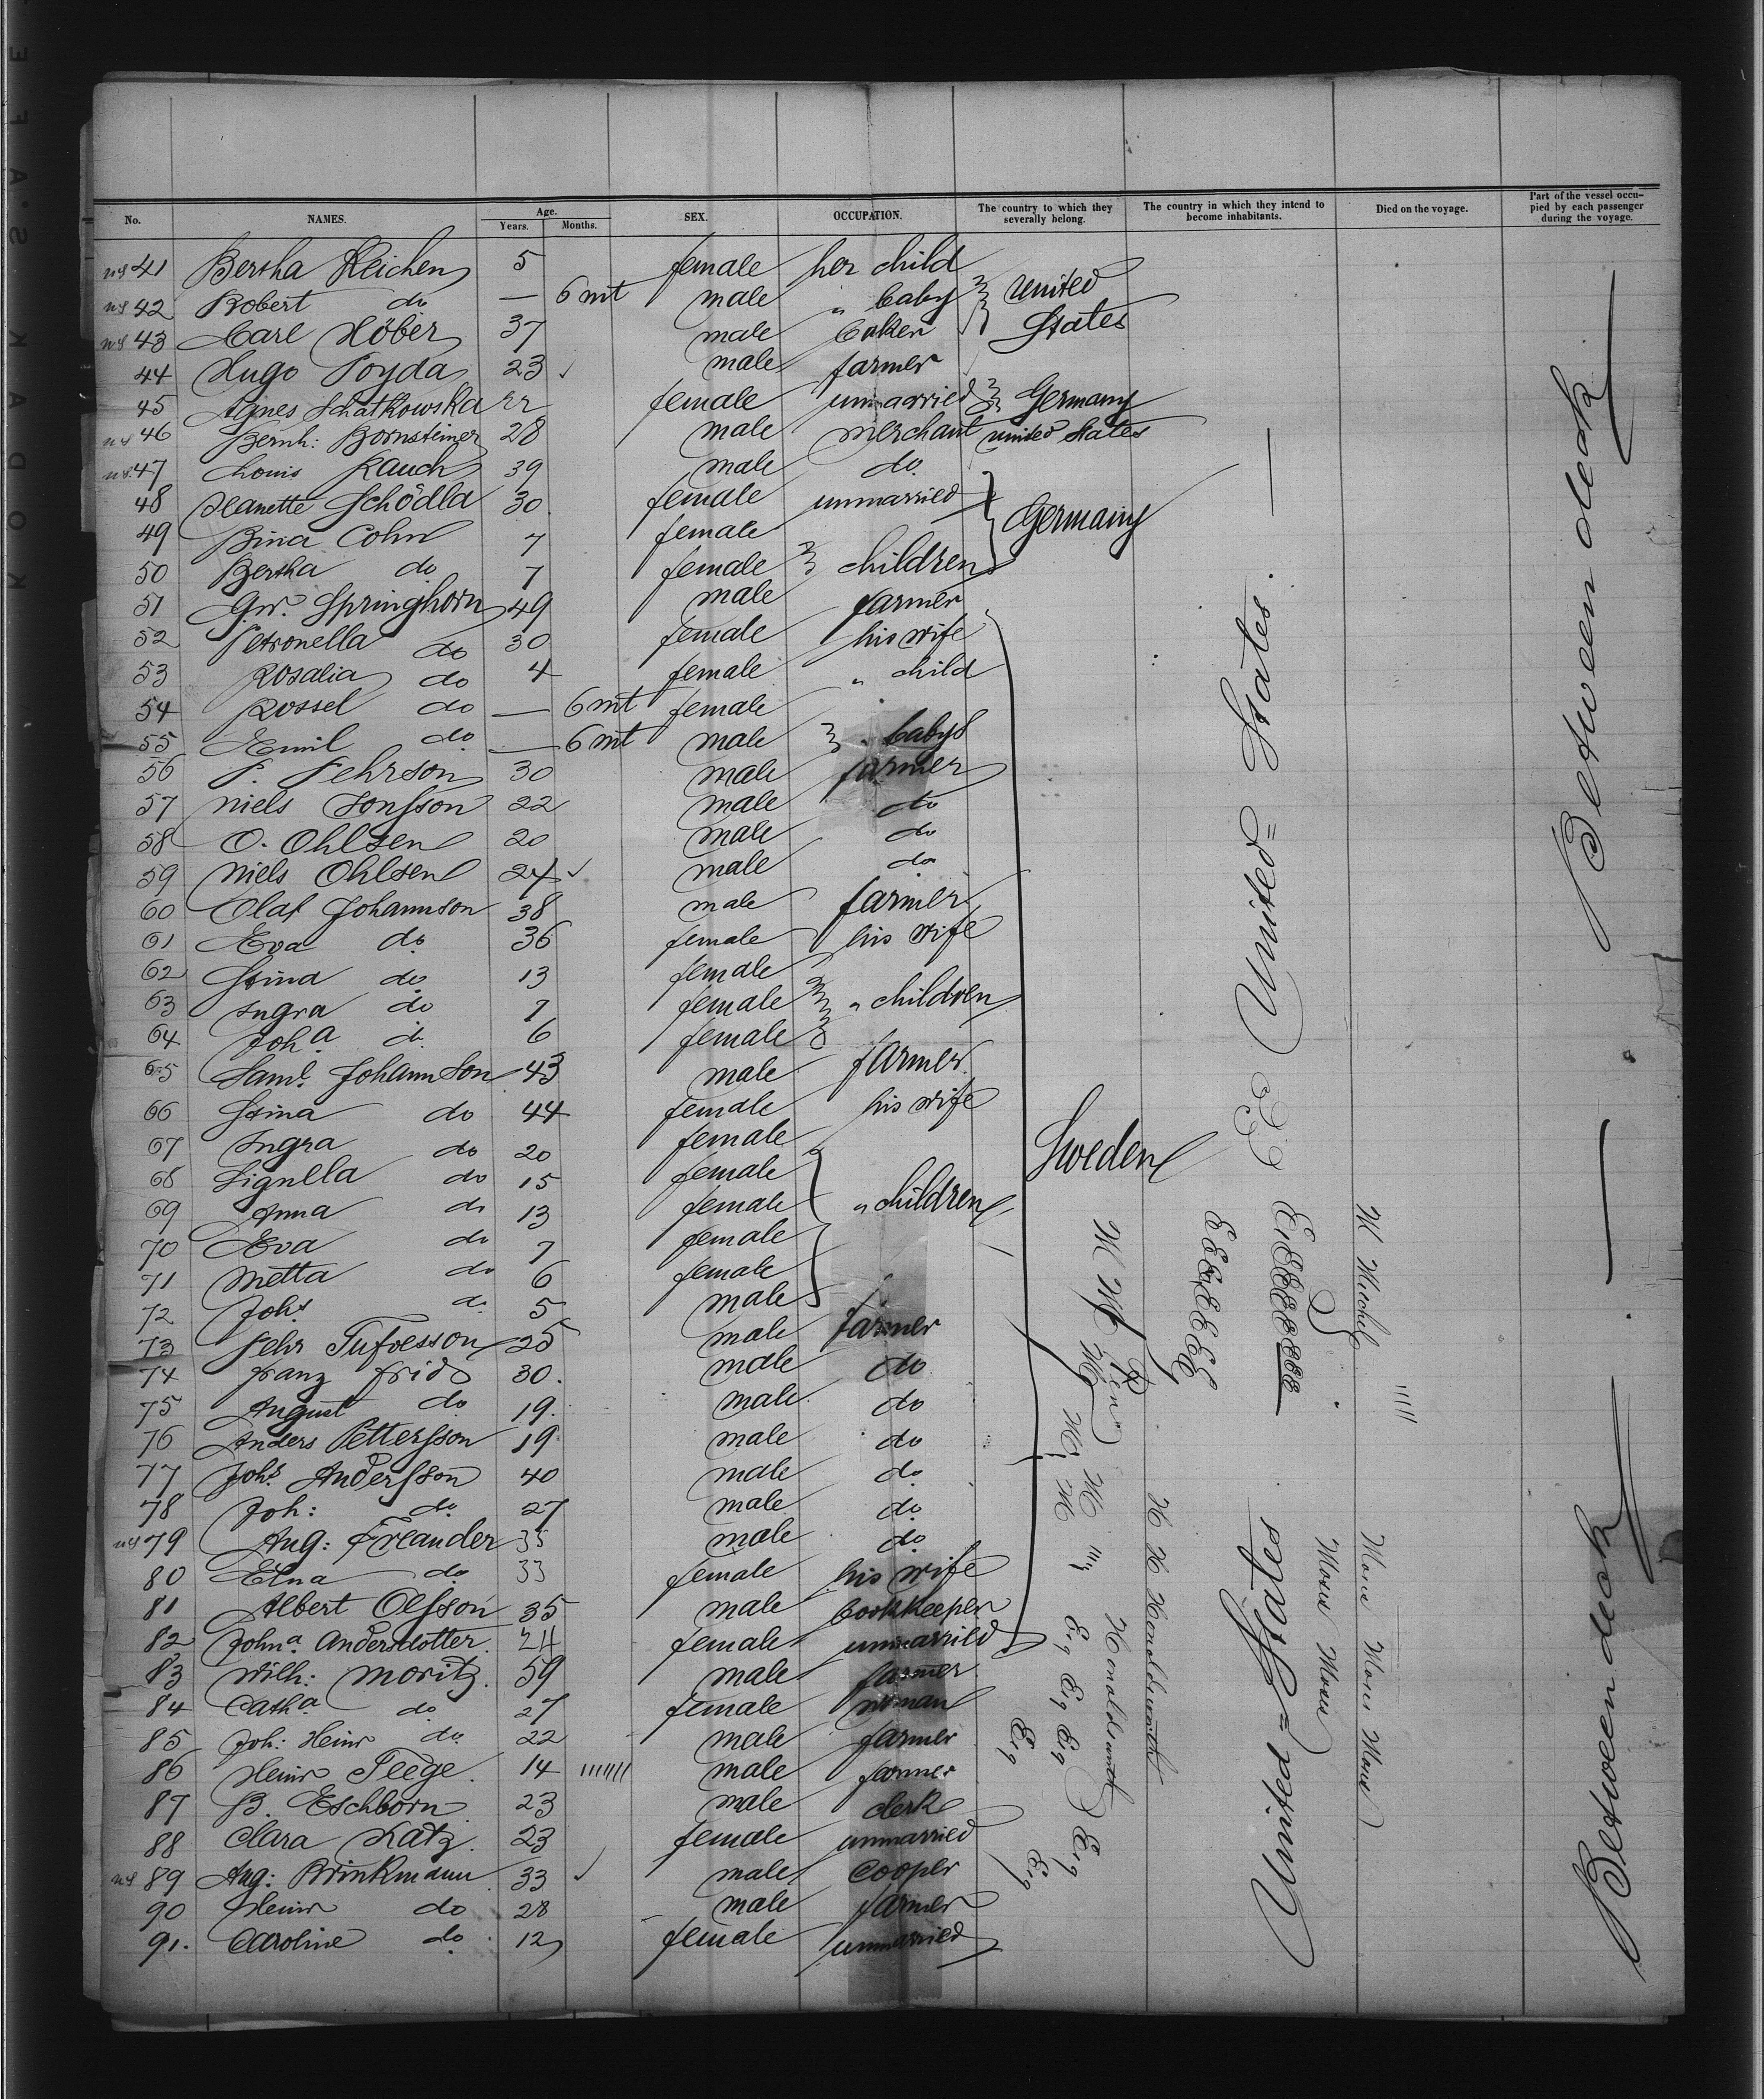 No. NAMES. Age. Years. Months. SEX. OCCUPATION. The country to which they severally belong. The country in which they intend to become inhabitants. Died on the voyage. Part of the vessel occupied by each passenger during the voyage.
41 Bertha Reichen 5 female her child
42 Robert do — 6 mt male " baby United
43 Carl Höber 37 male baker States
44 Hugo Poyda 23 male farmer
45 Agnes Schatkowska 22 female unmarried Germany
46 Bernh: Bornsteiner 28 male merchant united States
47 Louis Rauch 39 male do.
48 Jeanette Schödla 30 female unmarried Germany
49 Bina Cohn 7 female
50 Bertha do 7 female children
51 G.W. Springhorn 49 male farmer
52 Petronella do 30 female his wife
53 Rosalia do 4 female " child
54 Rossel do — 6 mt female
55 Emil do — 6 mt male " babys
56 P. Pehrson 30 male farmer
57 Niels Jonsson 22 male do
58 O. Ohlsen 20 male do
59 Niels Ohlsen 24 male do
60 Olaf Johannson 38 male farmer
61 Eva do 36 female his wife
62 Stina do 13 female
63 Ingra do 7 female " children
64 Joh.a do 6 female
65 Saml. Johannson 43 male farmer
66 Stina do 44 female his wife
67 Ingra do 20 female Sweden
68 Signella do 15 female
69 Anna do 13 female " children
70 Eva do 7 female
71 Metta do 6 female
72 Johs do 5 male
73 Pehr Tufvesson 25 male farmer
74 Franz Frid 30. male do
75 August do 19. male do
76 Anders Pettersson 19 male do
77 Johs Andersson 40 male do
78 Joh: do 27 male do
79 Aug: Freander 35 male do
80 Elna do 33 female his wife
81 Albert Olsson 35 male bookkeeper
82 Johna Andersdotter 24 female unmarried
83 Wilh: Moritz 59 male farmer
84 Catha do 27 female woman
85 Joh: Heinr do 22 male farmer
86 Heinr Teege 14 male farmer
87 B. Eschborn 23 male clerk
88 Clara Katz 23 female unmarried
89 Aug: Brinkmann 33 male cooper
90 Heinr do 28 male farmer
91. Caroline do 12 female unmarried
United = States
United = States
Between deck
Between deck